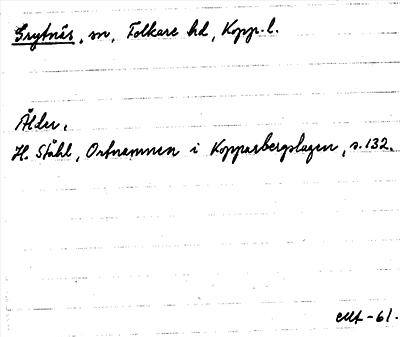 Grytnäs, sn, Folkare hd, Kopp. l.
Ålder.
H. Ståhl, Ortnamnen i Kopparbergslagen, s. 132.
-61.